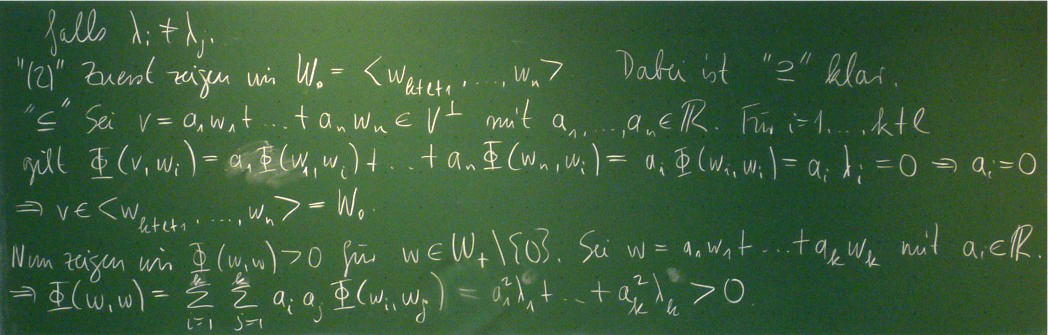 falls λ_i ≠ λ_j.
"(2)" Zuerst zeigen wir W_0 = <w_{k+l+1}, ..., w_n> Dabei ist "⊇" klar.
"⊆" Sei v = a_1 w_1 + ... + a_n w_n ∈ V^⊥ mit a_1, ..., a_n ∈ ℝ. Für i=1, ..., k+l
gilt Φ(v, w_i) = a_1 Φ(w_1, w_i) + ... + a_n Φ(w_n, w_i) = a_i Φ(w_i, w_i) = a_i λ_i = 0 ⇒ a_i = 0
⇒ v ∈ <w_{k+l+1}, ..., w_n> = W_0.
Nun zeigen wir Φ(w, w) > 0 für w ∈ W_+ \ {0}. Sei w = a_1 w_1 + ... + a_k w_k mit a_i ∈ ℝ.
⇒ Φ(w, w) = ∑_{i=1}^{k} ∑_{j=1}^{k} a_i a_j Φ(w_i, w_j) = a_1^2 λ_1 + ... + a_k^2 λ_k > 0